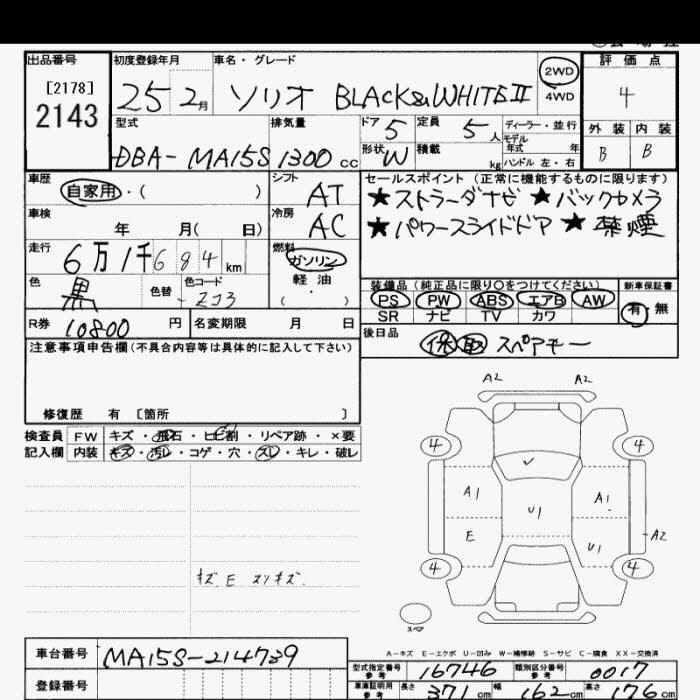 出品番号 初度登録年月 車名・グレード 2WD 評価点
[2178] 25 2月 ソリオ BLACK&WHITEⅡ 4WD 4
2143
型式 排気量 ドア 5 定員 5人 ディーラー・並行 外装 内装
モデル年式 年
DBA-MA15S 1300cc 形状 W 積載 kg ハンドル 左・右 B B
車歴 シフト セールスポイント(正常に機能するものに限ります)
自家用・( ) AT ★ストラーダナビ ★バックカメラ
車検 冷房 ★パワースライドドア ★禁煙
年 月( 日) AC
走行 燃料
6万1千684km ガソリン
色 色替 色コード 軽油 装備品(純正品に限り〇をつけてください) 新車保証書
黒 -ZJ3 ・( ) PS PW ABS エアB AW 有・無
SR ナビ TV カワ
R券 10800円 名変期限 月 日 後日品
保 取 スペアキー
注意事項申告欄(不具合内容等は具体的に記入して下さい)
修復歴 有 〔箇所 〕
検査員 FW キズ・飛石・ヒビ割・リペア跡・×要
記入欄 内装 キズ・汚レ・コゲ・穴・スレ・キレ・破レ
A2 A2
4 4
A1 A1
U1
E U1 A2
4 4
キズ E スリキズ
スペア
A-キズ E-エクボ U-凹み W-補修跡 S-サビ C-腐食 XX-交換済
車台番号 MA15S-214739
型式指定番号 参考 16746 類別区分番号 参考 0017
登録番号
車庫証明用 参考 長さ 371cm 幅 162cm 高さ 176cm